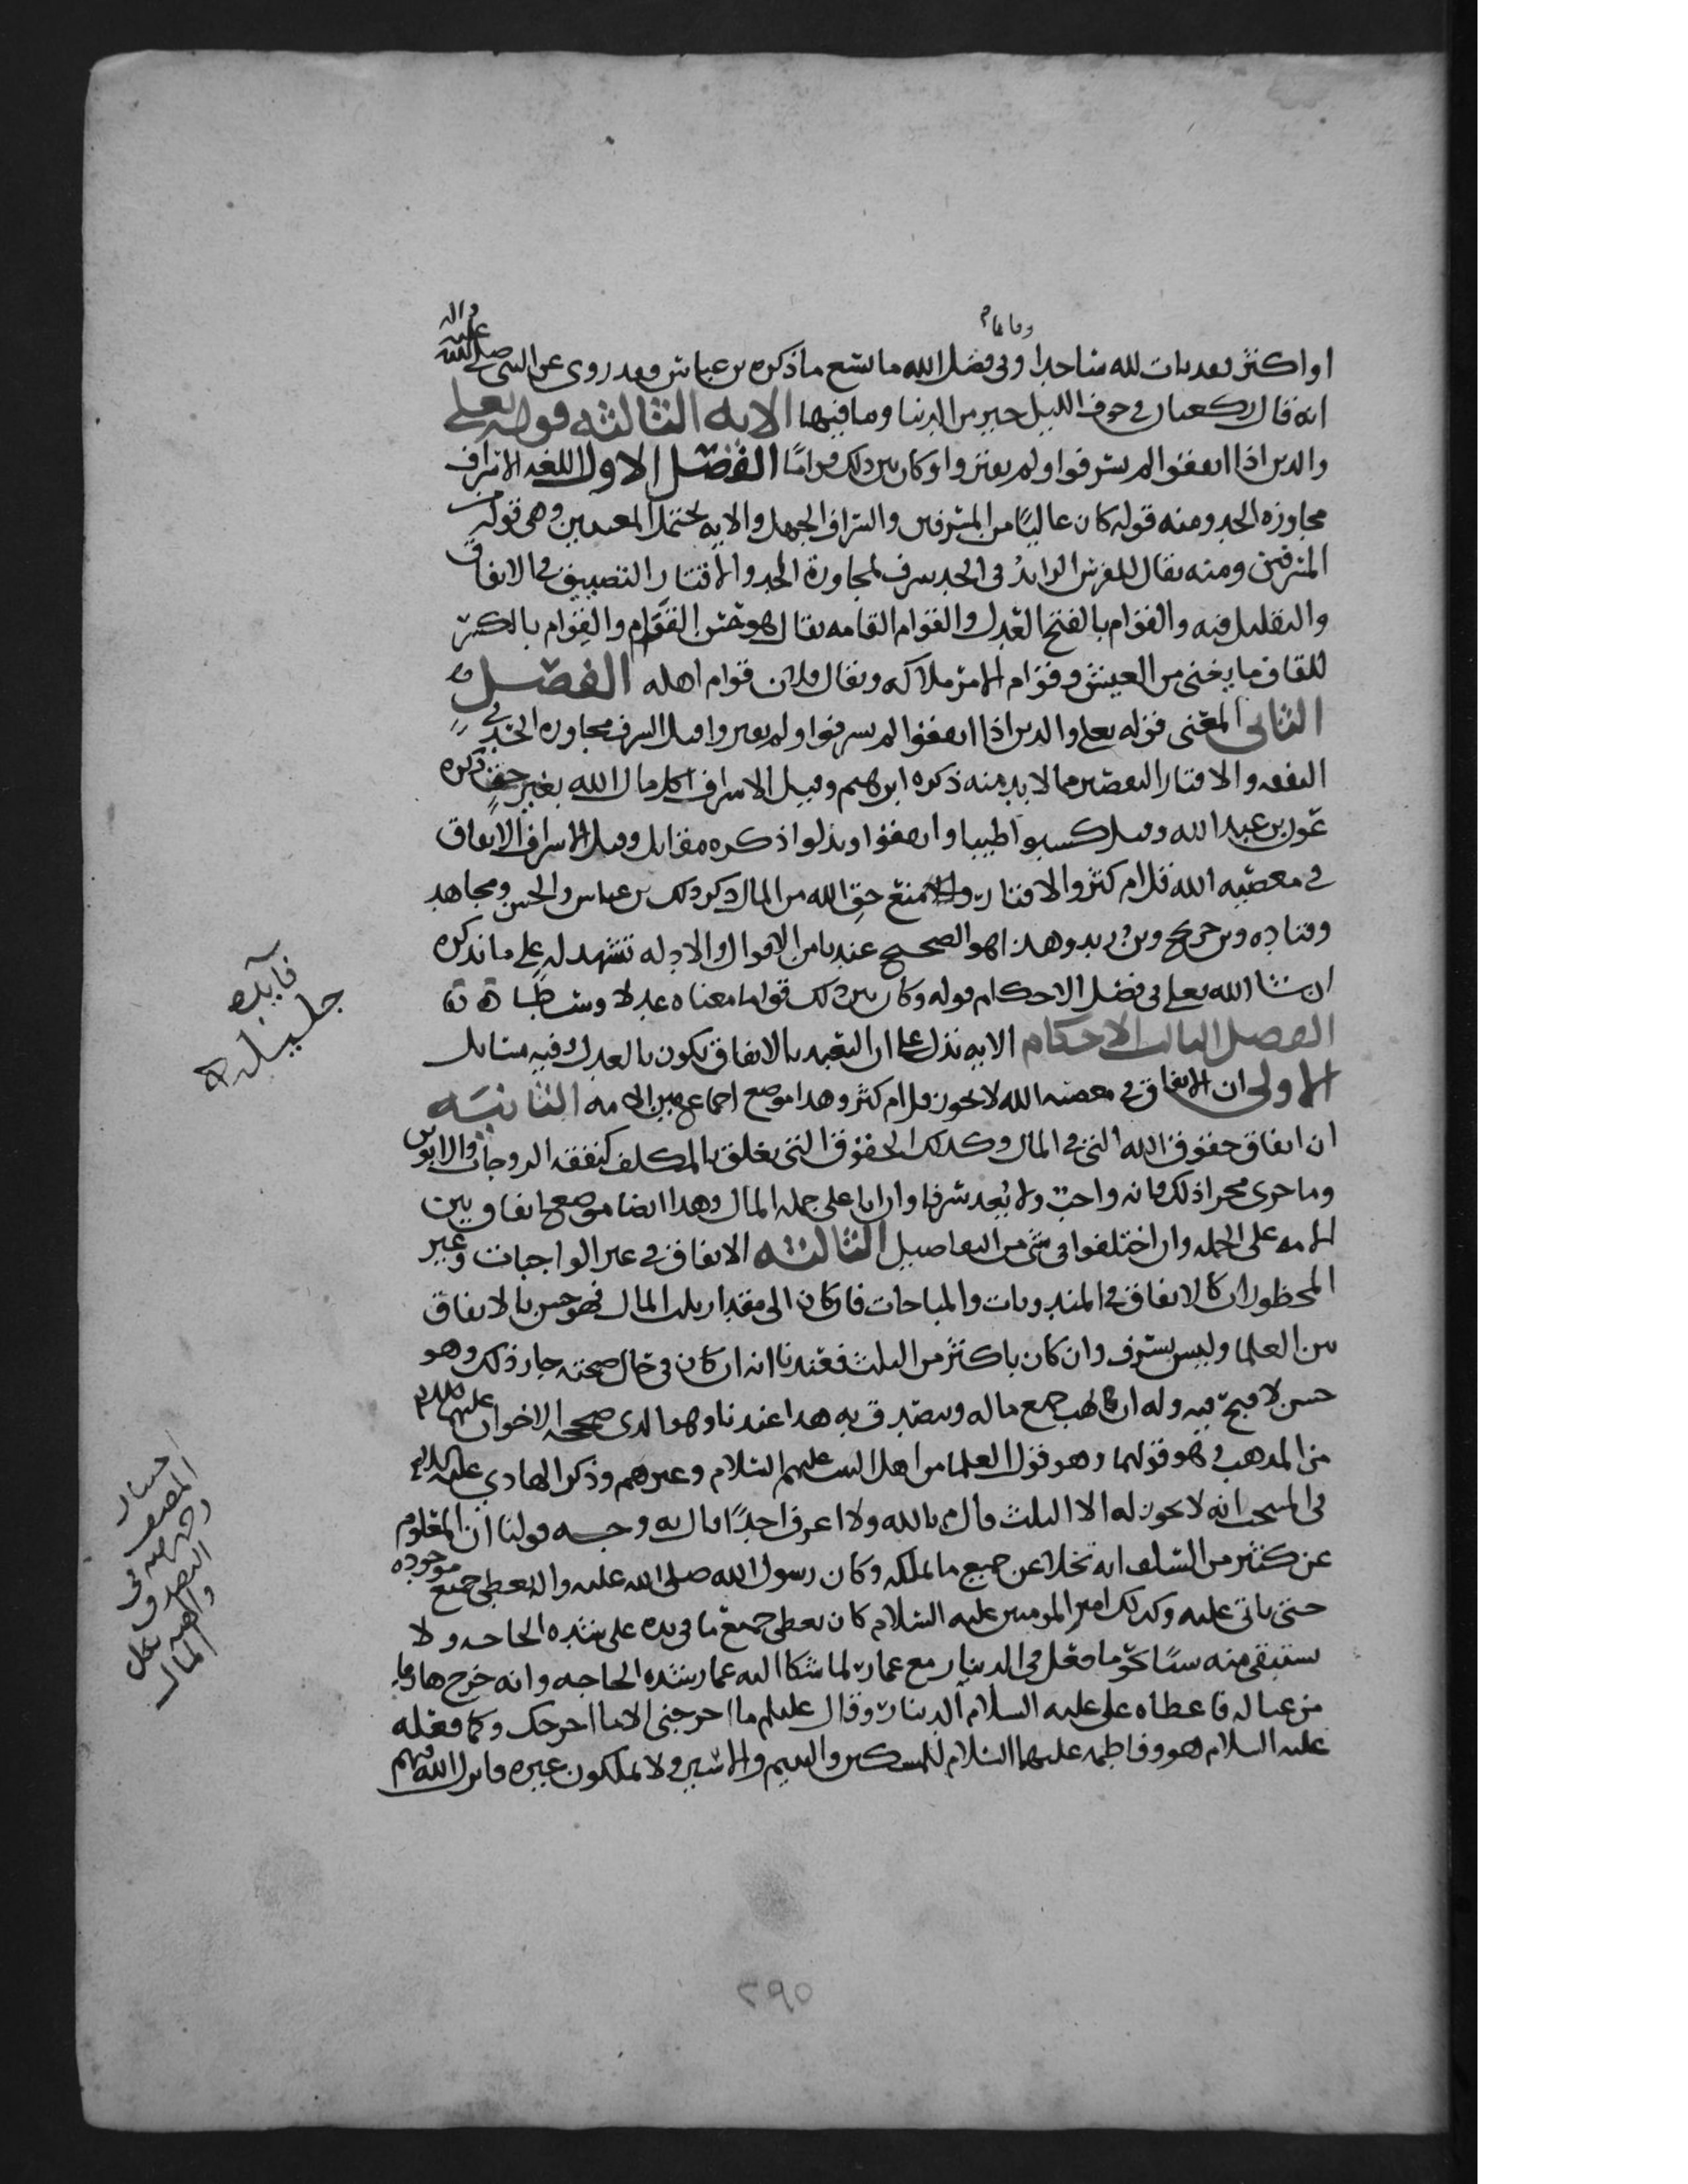 وقائما
او اكثر فقد بات لله ساجدا وفي فضل الله ما يسع ما ذكره بن عباس وقد روى عن النبي صلى الله عليه واله
انه قال ركعتان في جوف الليل خير من الدنيا وما فيها الايه الثالثه قوله تعلى
والذين اذا انفقوا لم يسرفوا ولم يقتروا وكان بين ذلك قواما الفصل الاول اللغه الاسراف
مجاوزه الحد ومنه قوله كان عاليا من المسرفين والسراف الجهل والايه تحتمل المعنيين وهي قوله
المسرفين ومنه يقال للفرس الزايد في الحد سرف لمجاوزة الحد والاقتار التضييق في الانفاق
والتقليل فيه والقوام بالفتح العدل والقوام القامه يقال هو حسن القوام والقوام بالكسر
للقاف ما يغني من العيش وقوام الامر ملاكه ويقال فلان قوام اهله الفصل
الثاني المعنى قوله تعلى والذين اذا انفقوا لم يسرفوا ولم يقتروا قيل السرف مجاوزه الحد في
النفقه والاقتار التقصير مما لا بد منه ذكره ابرهيم وقيل الاسراف اكل مال الله بغير حق ذكره
عون بن عبد الله وقيل كسبوا طيبا وانفقوا وبذلوا ذكره مقاتل وقيل الاسراف الانفاق
في معصيه الله قل ام كثر والاقتار منع حق الله من المال ذكر ذلك بن عباس والحسن ومجاهد
وقتاده وبن جريج وبن زيد وهذا هو الصحيح عندنا من الاقوال والادله تشهد له على ما نذكره
ان شا الله تعلى في فصل الاحكام قوله وكان بين ذلك قواما معناه عدلا وسطا
الفصل الثالث الاحكام الايه تدل على ان التعبد بالانفاق يكون بالعدل وفيه مسايل
الاولى ان الانفاق في معصيه الله لا يجوز قل ام كثر وهذا موضع اجماع بين الامه الثانيه
ان انفاق حقوق الله التي في المال وكذلك الحقوق التي تعلق بالمكلف كنفقه الزوجات والابوين
وما جرى مجرا ذلك فانه واجب ولا يعد سرفا وان اتا على جمله المال وهذا ايضا موضع اتفاق بين
الامه على الجمله وان اختلفوا في شي من التفاصيل الثالثه الانفاق في غير الواجبات وغير
المحظورات كالانفاق في المندوبات والمباحات فان كان الى مقدار ثلث المال فهو حسن بالاتفاق
بين العلما وليس بسرف وان كان باكثر من الثلث فعندنا انه ان كان في حال صحته جاز ذلك وهو
حسن لا قبح فيه وله ان يهب جميع ماله ويتصدق به هذا عندنا وهو الذي صححه الاخوان عليهما السلام
من المذهب فهو قولهما وهو قول العلما من اهل البيت عليهم السلام وغيرهم وذكر الهادي عليه السلام
في المنتخب انه لا يجوز له الا الثلث قال م بالله ولا اعرف احدا قال به وجه قولنا ان المعلوم
عن كثير من السلف انه تخلا عن جميع ما يملكه وكان رسول الله صلى الله عليه واله يعطي جميع موجوده
حتى ياتي عليه وكذلك امير المومنين عليه السلام كان يعطي جميع ما في يده على شده الحاجه ولا
يستبقي منه شيا نحو ما فعل في الدينار مع عمار لما شكا اليه عمار شده الحاجه وانه خرج هاربا
من عياله فاعطاه علي عليه السلام الدينار وقال عليلم ما اخرجني الا ما اخرجك وكما فعله
عليه السلام هو وفاطمه عليهما السلام للمسكين واليتيم والاسير ولا يملكون غيره فانزل الله فيهم
فايده
جليله
اختيار
المصنف
في
التصدق
المال
٢٩٥